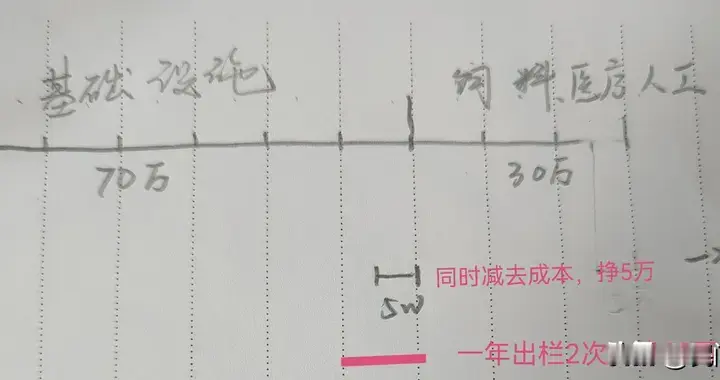 基础设施 饲料医疗人工
70万 30万
同时减去成本，挣5万
5w
一年出栏2次